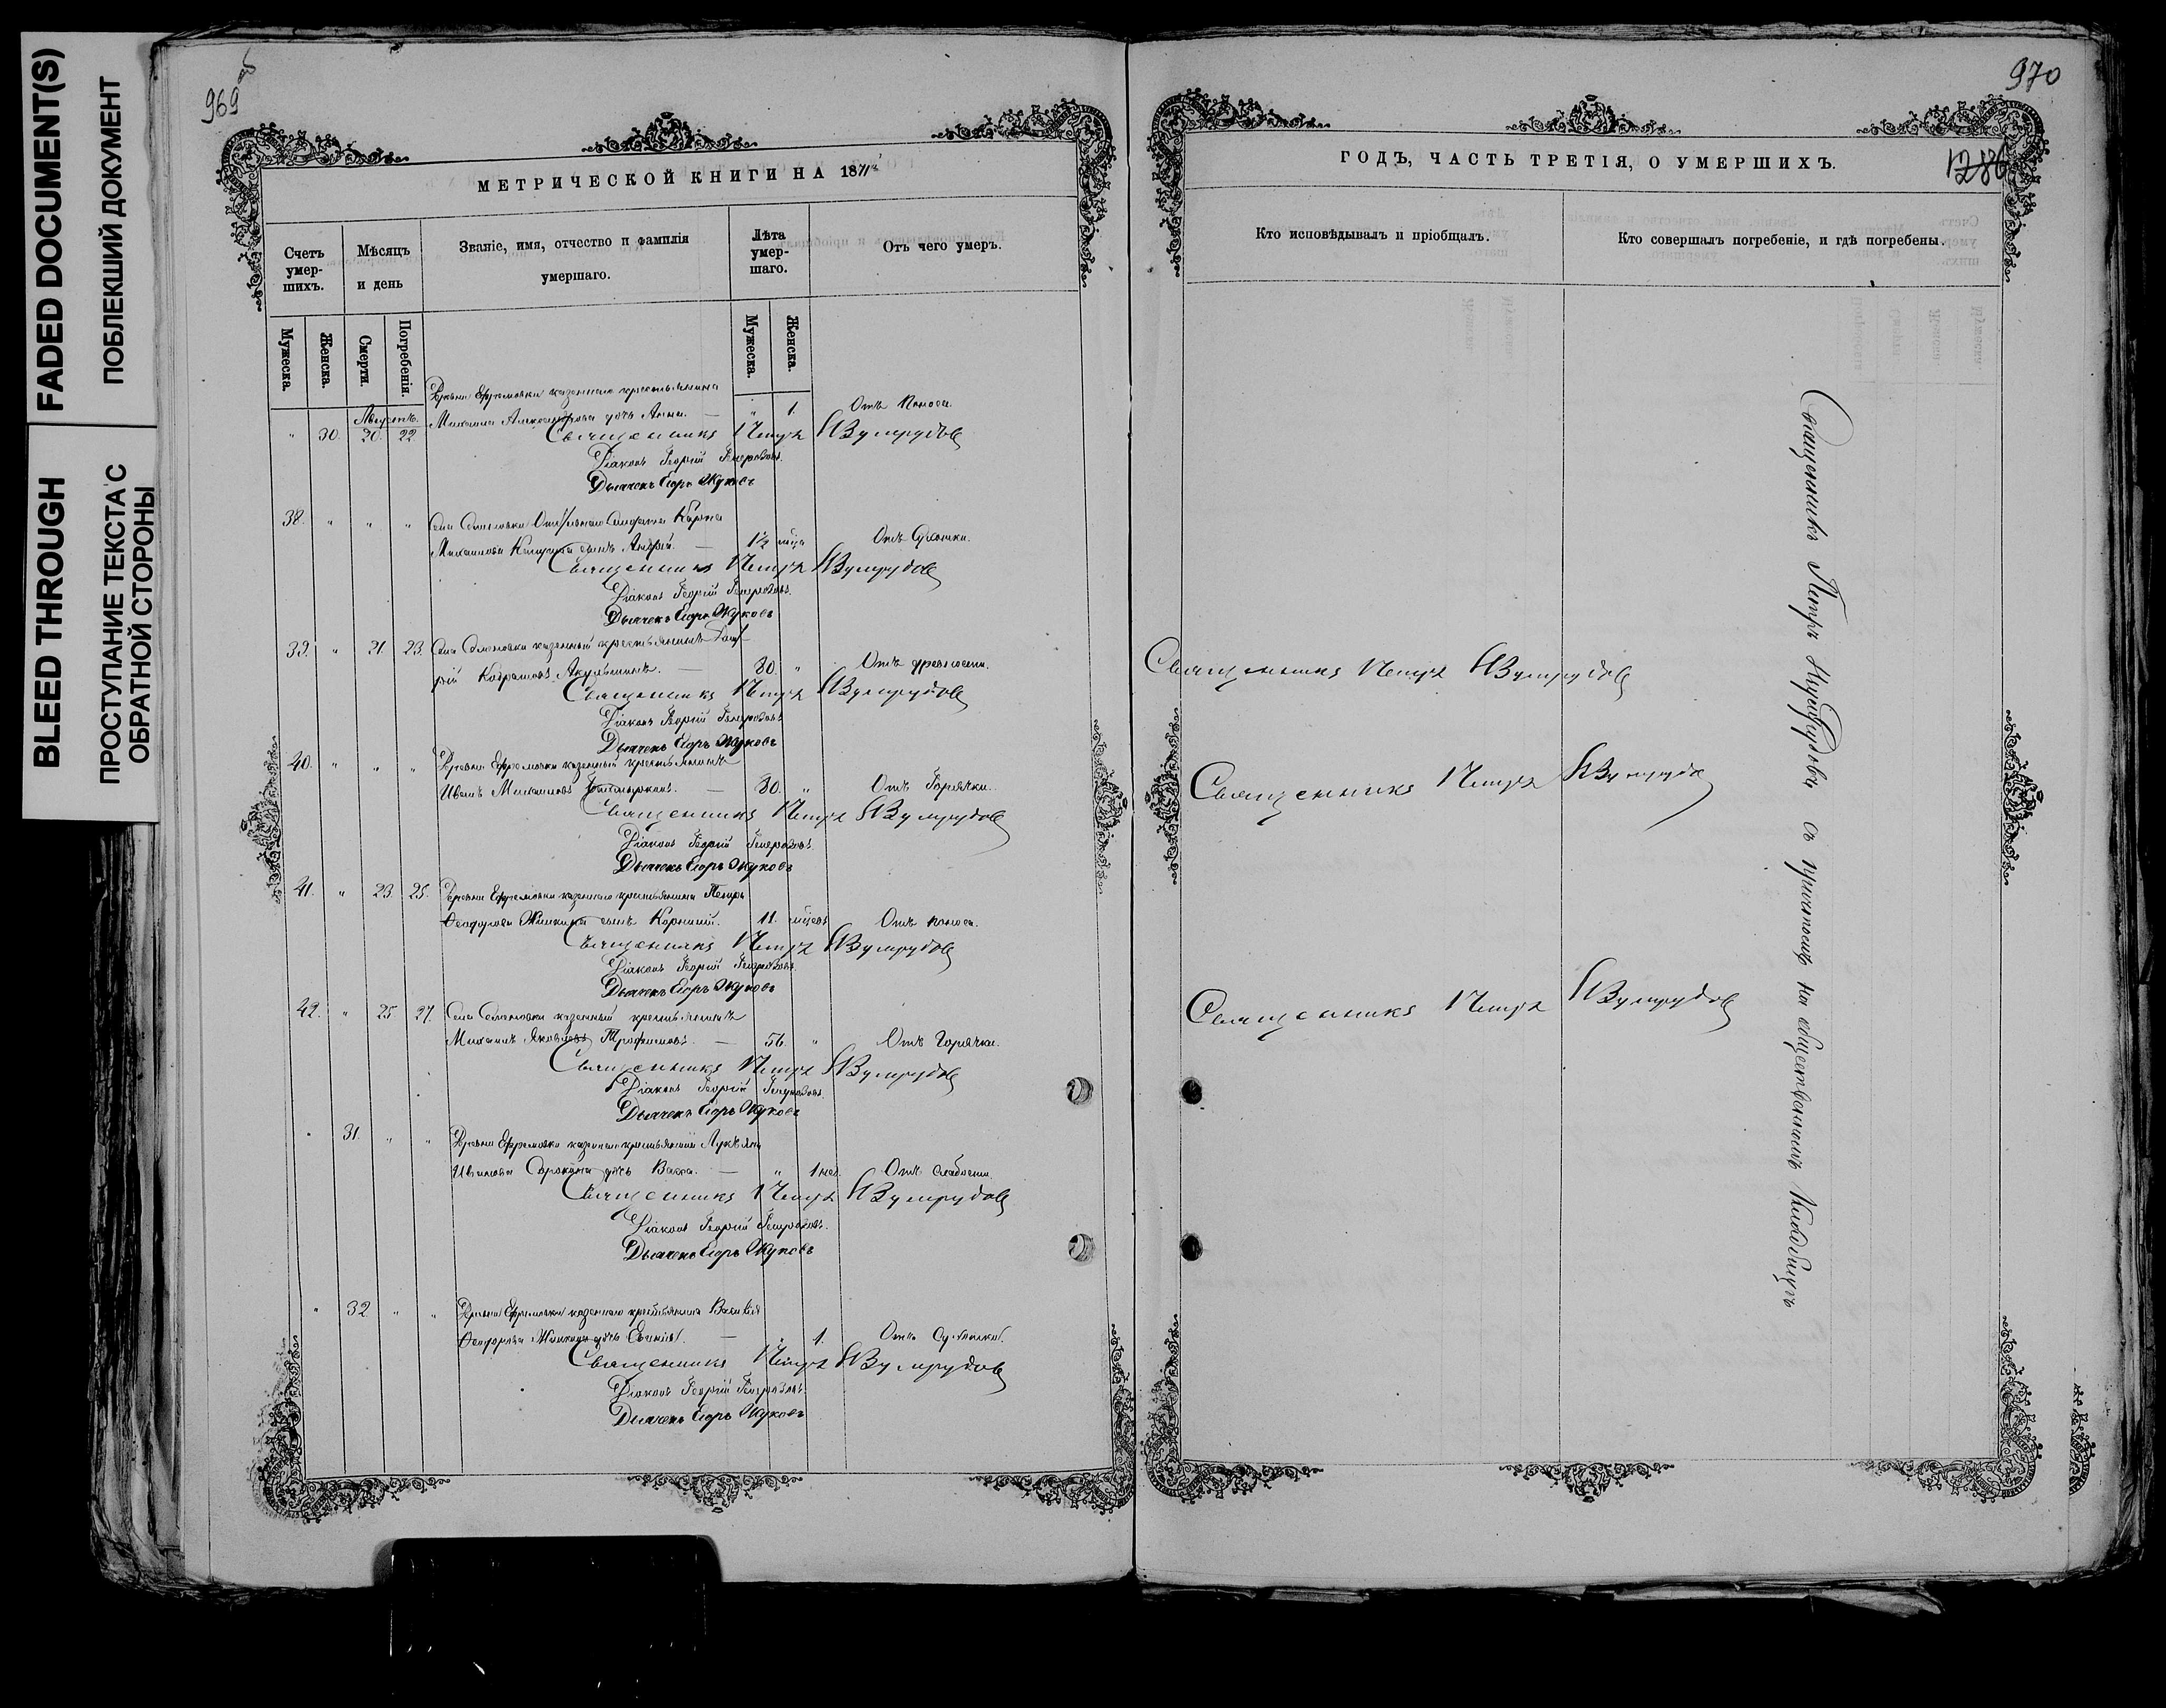 FADED DOCUMENT(S)
ПОБЛЕКШИЙ ДОКУМЕНТ
BLEED THROUGH
ПРОСТУПАНИЕ ТЕКСТА С
ОБРАТНОЙ СТОРОНЫ
969 об
МЕТРИЧЕСКОЙ КНИГИ НА 1871й
Счетъ умершихъ.
Мѣсяцъ и день
Званіе, имя, отчество и фамилія умершаго.
Лѣта умершаго.
Отъ чего умеръ.
Мужеска.
Женска.
Смерти.
Погребенія.
Мужеска.
Женска.
Деревни Ефремовки казеннаго крестьянина
Августъ.
" 30. 20. 22. Михаила Александрова дочь Анна. — " 1. Отъ поноса.
Священникъ Петръ Изумрудовъ
Діаконъ Георгій
Дьячекъ Егоръ Жуковъ
38. " " " Села Семеновки солдата Карпа
Михайлова сынъ Андрей. — 1½ мѣся Отъ Сухотки.
Священникъ Петръ Изумрудовъ
Діаконъ Георгій
Дьячекъ Егоръ Жуковъ
39. " 21. 23. Села Семеновки казенный крестьянинъ
— 80. " Отъ древности.
Священникъ Петръ Изумрудовъ
Діаконъ Георгій
Дьячекъ Егоръ Жуковъ
40. " " " Деревни Ефремовки казенный крестьянинъ
Иванъ Михаиловъ — 30. " Отъ Горячки.
Священникъ Петръ Изумрудовъ
Діаконъ Георгій
Дьячекъ Егоръ Жуковъ
41. " 23. 25. Деревни Ефремовки казеннаго крестьянина Петра
Феодорова сынъ Корнилій. 11. мѣсяц Отъ поноса.
Священникъ Петръ Изумрудовъ
Діаконъ Георгій
Дьячекъ Егоръ Жуковъ
42. " 25 27. Села Семеновки казенный крестьянинъ
Михаилъ Яковлевъ Трофимовъ. — 56. " Отъ Горячки.
Священникъ Петръ Изумрудовъ
Діаконъ Георгій
Дьячекъ Егоръ Жуковъ
" 31. " " Деревни Ефремовки казеннаго крестьянина Лукьяна
Иванова Сорокина дочь Васса. — " 1 нед. Отъ слабости.
Священникъ Петръ Изумрудовъ
Діаконъ Георгій
Дьячекъ Егоръ Жуковъ
" 32. " " Деревни Ефремовки казеннаго крестьянина Василія
Феодорова дочь — " 1. Отъ Сухотки.
Священникъ Петръ Изумрудовъ
Діаконъ Георгій
Дьячекъ Егоръ Жуковъ
970
ГОДЪ, ЧАСТЬ ТРЕТІЯ, О УМЕРШИХЪ.
1286
Кто исповѣдывалъ и пріобщалъ.
Кто совершалъ погребеніе, и гдѣ погребены.
Священникъ Петръ Изумрудовъ
Священникъ Петръ Изумрудовъ
Священникъ Петръ Изумрудовъ
Священникъ Петръ Изумрудовъ съ причтомъ на общественномъ кладбищѣ